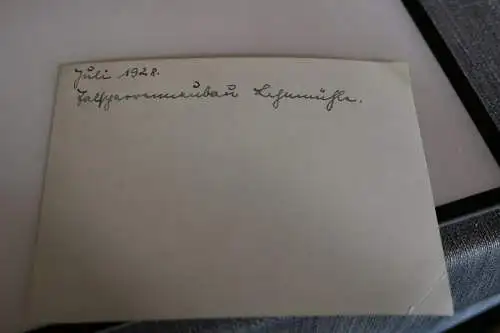 Juli 1928.
Talsperrenneubau Lehnmühle.